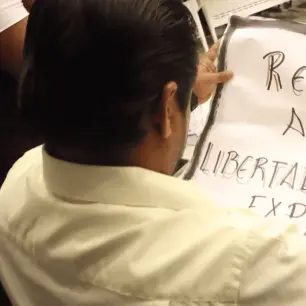 RE
A
LIBERTA
EXP